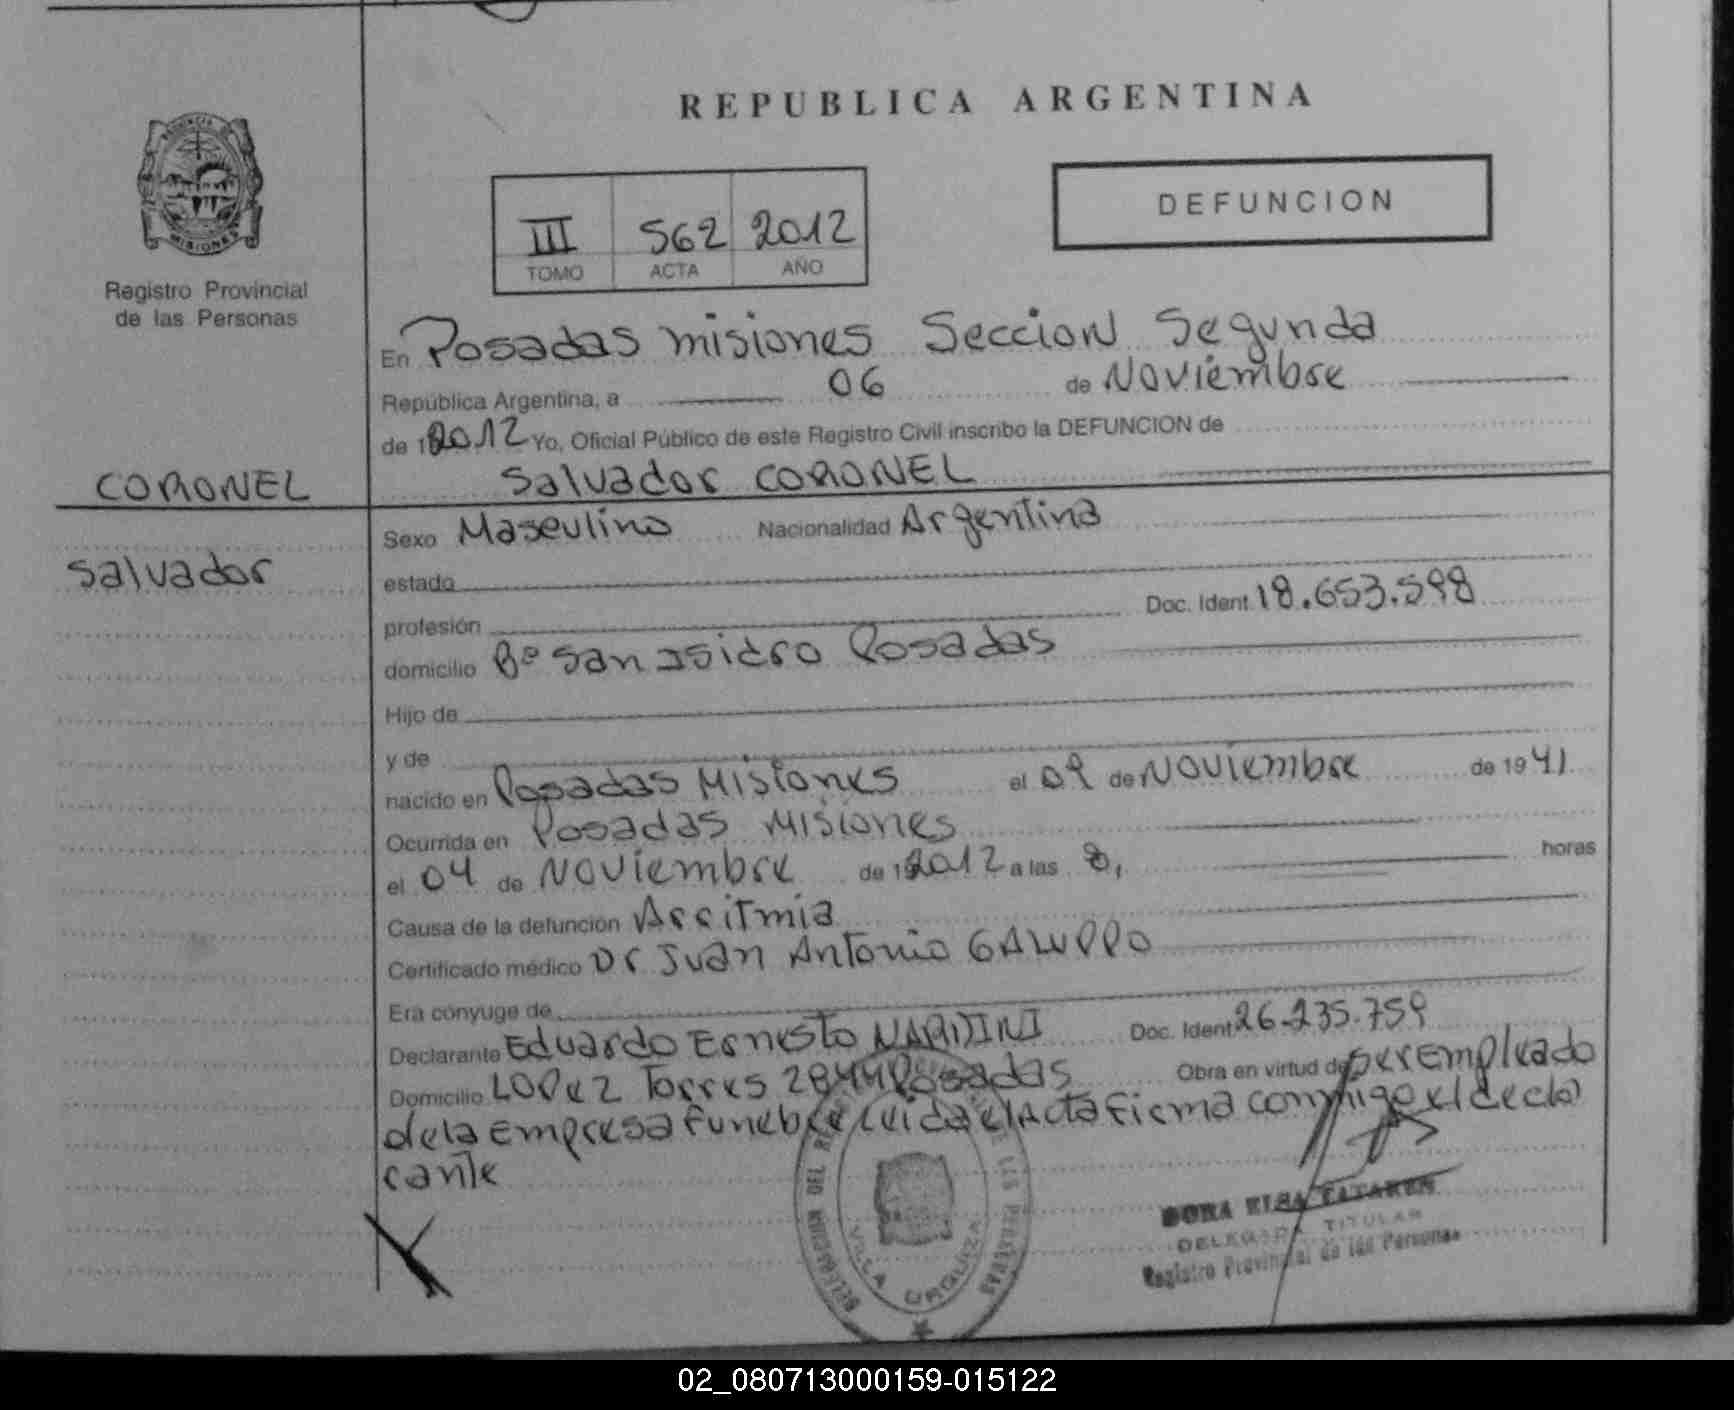 REPUBLICA ARGENTINA
PROVINCIA DE MISIONES
Registro Provincial
de las Personas
III 562 2012
TOMO ACTA AÑO
DEFUNCION
En Posadas misiones Seccion Segunda
República Argentina, a 06 de Noviembre
de 2012 Yo, Oficial Público de este Registro Civil inscribo la DEFUNCION de
CORONEL
Salvador CORONEL
Salvador
Sexo Masculino Nacionalidad Argentina
estado
profesión Doc. Ident. 18.653.598
domicilio Bº San Isidro Posadas
Hijo de
y de
nacido en Posadas Misiones el 09 de Noviembre de 1941
Ocurrida en Posadas Misiones
el 04 de Noviembre de 2012 a las 8, horas
Causa de la defunción Arritmia
Certificado médico Dr Juan Antonio GALUPPO
Era cónyuge de
Declarante Eduardo Ernesto NARDINI Doc. Ident 26.235.759
Domicilio LOPez Torres 2844 Posadas Obra en virtud de ser empleado
de la empresa funebre Leida el Acta firma conmigo el decla
rante
DELEGACION DEL REGISTRO DE LAS PERSONAS
VILLA URQUIZA
DORA ELSA
DELEGADA TITULAR
Registro Provincial de las Personas
02_080713000159-015122